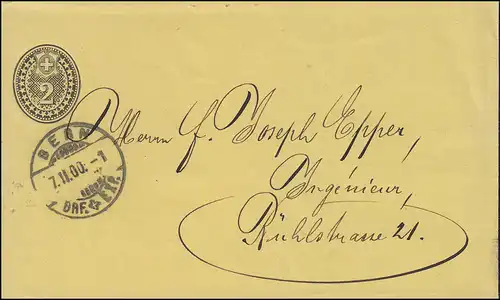 2
BERN
7.II.00.-1
BRF.
Herrn F. Joseph Epper,
Ingénieur,
Rühlstrasse 21.